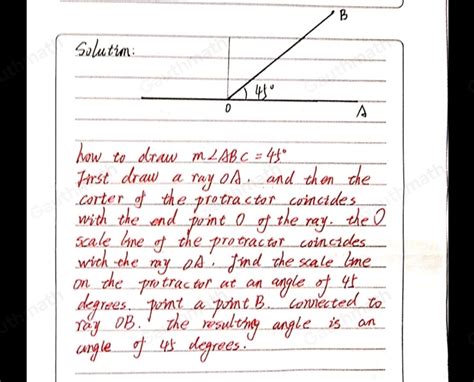 B
Solutim:
45°
O
A
how to draw m∠ABC = 45°
First draw a ray OA. and then the
corter of the protractor coincides
with the end point O of the ray. the O
scale line of the protractor coincides
with the ray OA. find the scale line
on the protractor at an angle of 45
degrees. point a point B. connected to
ray OB. The resulting angle is an
angle of 45 degrees.